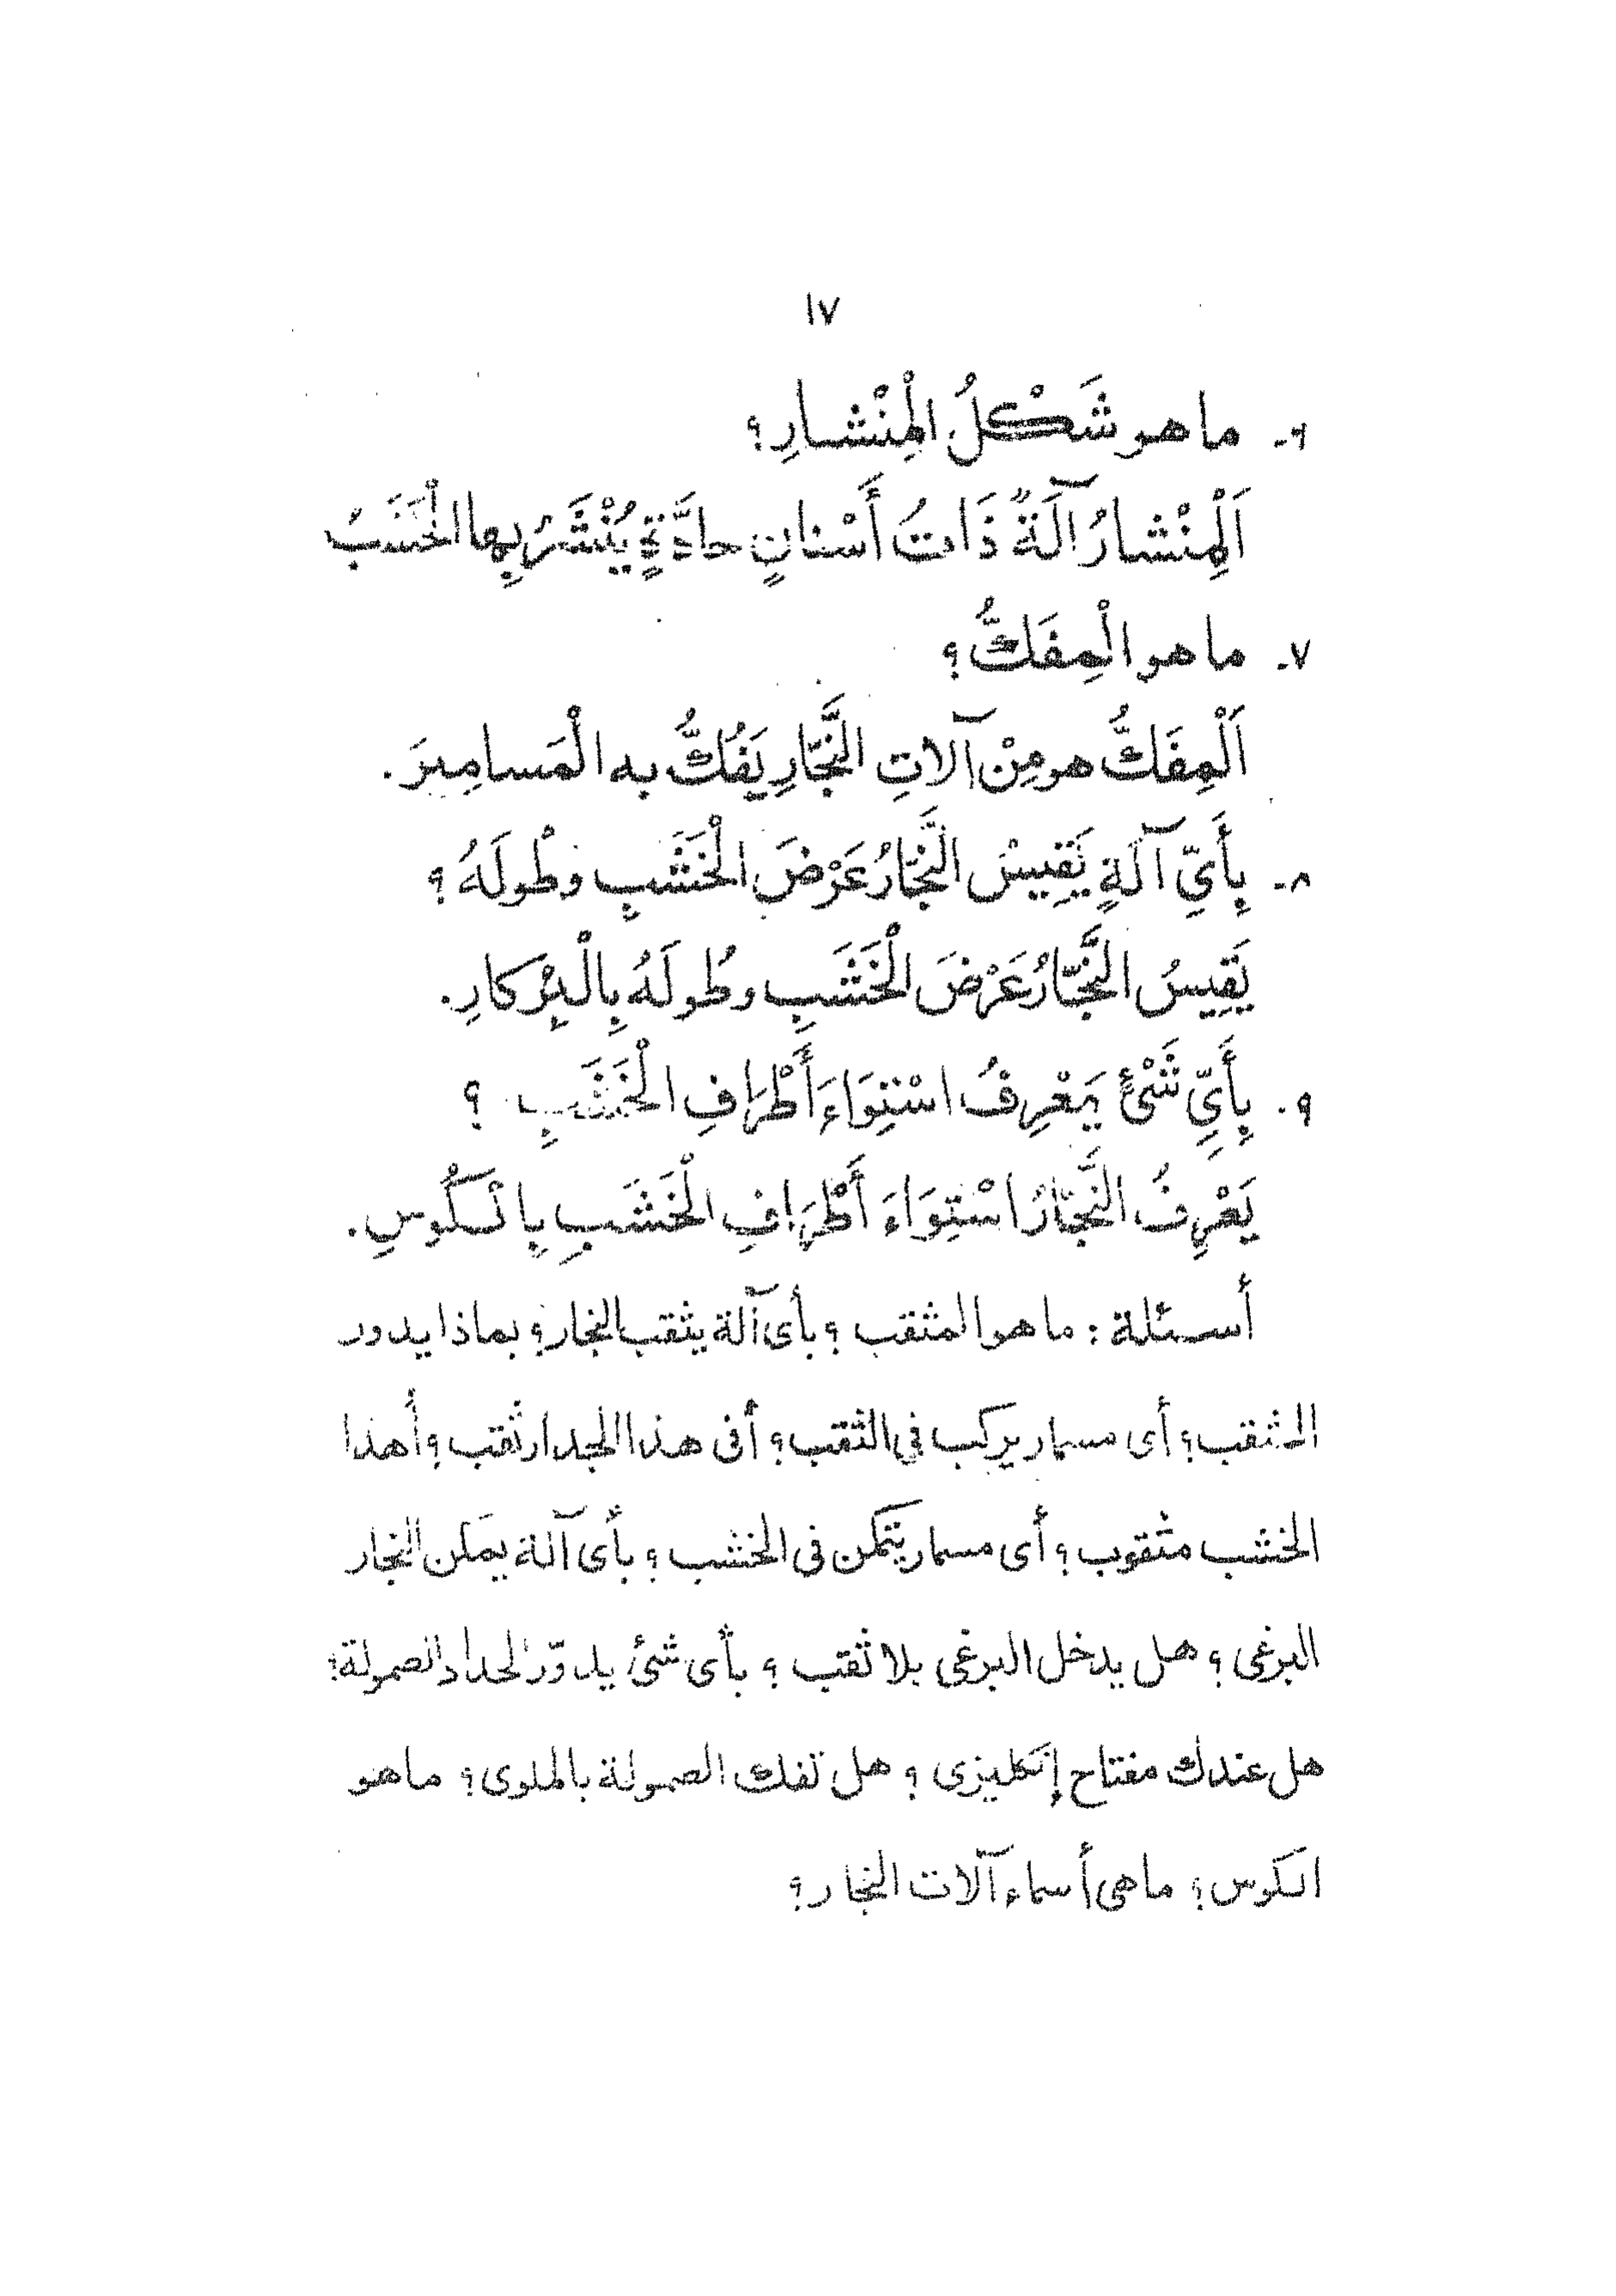 ١٧
٦- ما هو شَكْلُ الْمِنْشارِ؟
اَلْمِنْشارُ آلَةٌ ذَاتُ أَسْنانٍ حادَّةٍ يُنْشَرُ بِها الْخَشَبُ
٧- ما هو الْمِفَكُّ؟
اَلْمِفَكُّ هو مِنْ آلاتِ النَّجّارِ يَفُكُّ به الْمَسامِيرَ.
٨- بِأَيِّ آلَةٍ يَقِيسُ النَّجّارُ عَرْضَ الْخَشَبِ وطُولَهُ؟
يَقِيسُ النَّجّارُ عَرْضَ الْخَشَبِ وطُولَهُ بِالْبِرْكارِ.
٩. بِأَيِّ شَئْئٍ يَعْرِفُ اسْتِوَاءَ أَطْرَافِ الْخَشَبِ ؟
يَعْرِفُ النَّجّارُ اسْتِوَاءَ أَطْرَافِ الْخَشَبِ بِالْكُوسِ.
أسئلة : ما هو المثقب ؟ بأى آلة يثقب النجار؟ بماذا يدور
المثقب؟ أى مسمار يركب فى الثقب؟ أفى هذا الجدار ثقب؟ أهذا
الخشب مثقوب؟ أى مسمار يتمكن فى الخشب؟ بأى آلة يمكن النجار
البرغى؟ هل يدخل البرغى بلا ثقب ؟ بأى شئ يدوّر الحداد الصمولة؟
هل عندك مفتاح إنكليزى ؟ هل تفك الصمولة بالملوى؟ ما هو
الكوس؟ ما هى أسماء آلات النجار؟